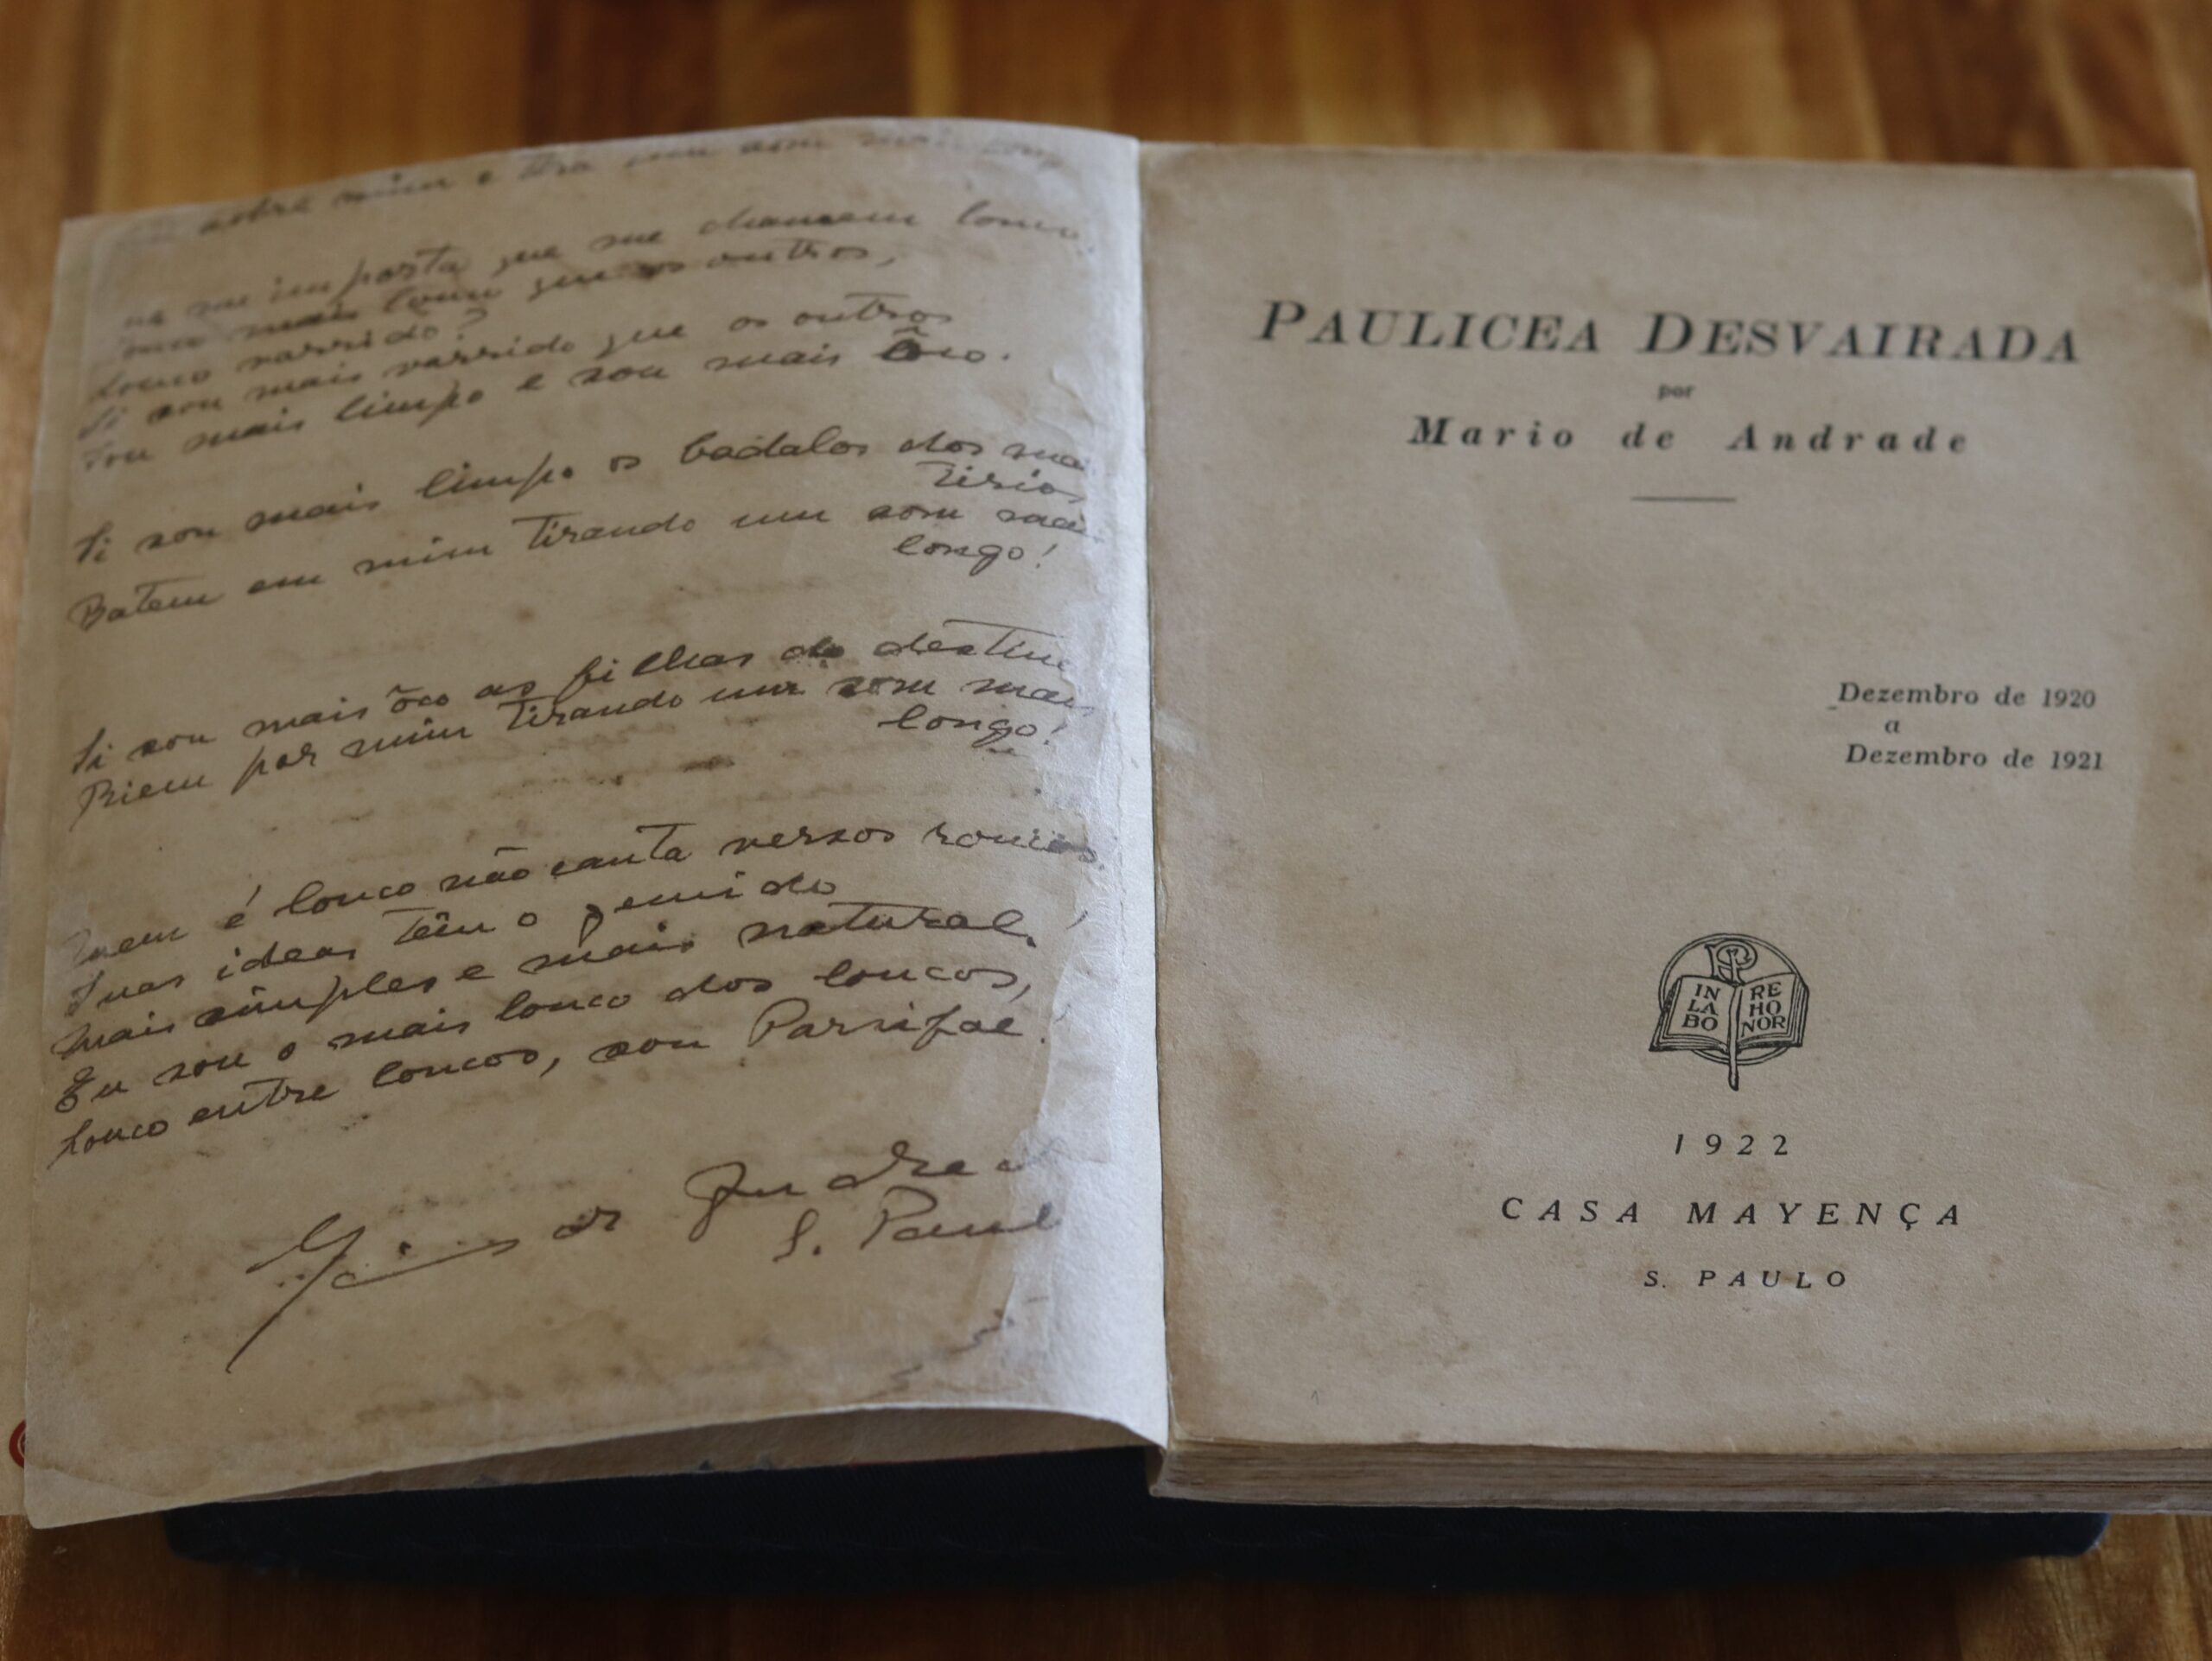 sobre mim e tira um som mais
me importa que me chamem louco.
mais louco que os outros,
Louco varrido?
Si sou mais varrido que os outros
Sou mais limpo e sou mais ôco.
Si sou mais limpo os badalos dos ma
tirios
Batem em mim tirando um som mai
longo!
Si sou mais ôco as filhas do destino
Riem por mim tirando um som mais
longo!
Quem é louco não canta versos roucos.
Suas ideas têm o gemido
mais simples e mais natural.
Eu sou o mais louco dos loucos,
Louco entre loucos, sou Parsifal!
Mario de Andrade
S. Paulo
PAULICEA DESVAIRADA
por
Mario de Andrade
Dezembro de 1920
a
Dezembro de 1921
IN RE
LA HO
BO NOR
1922
CASA MAYENÇA
S. PAULO